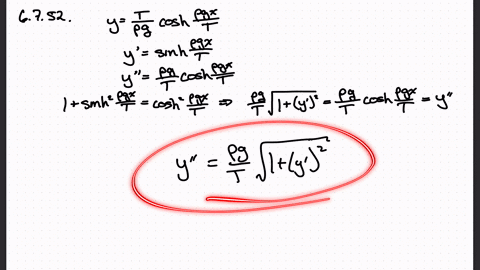 6.7.52. y = T/ρg cosh ρgx/T
y' = sinh ρgx/T
y'' = ρg/T cosh ρgx/T
1 + sinh² ρgx/T = cosh² ρgx/T ⇒ ρg/T √(1+(y')²) = ρg/T cosh ρgx/T = y''
y'' = ρg/T √(1+(y')²)